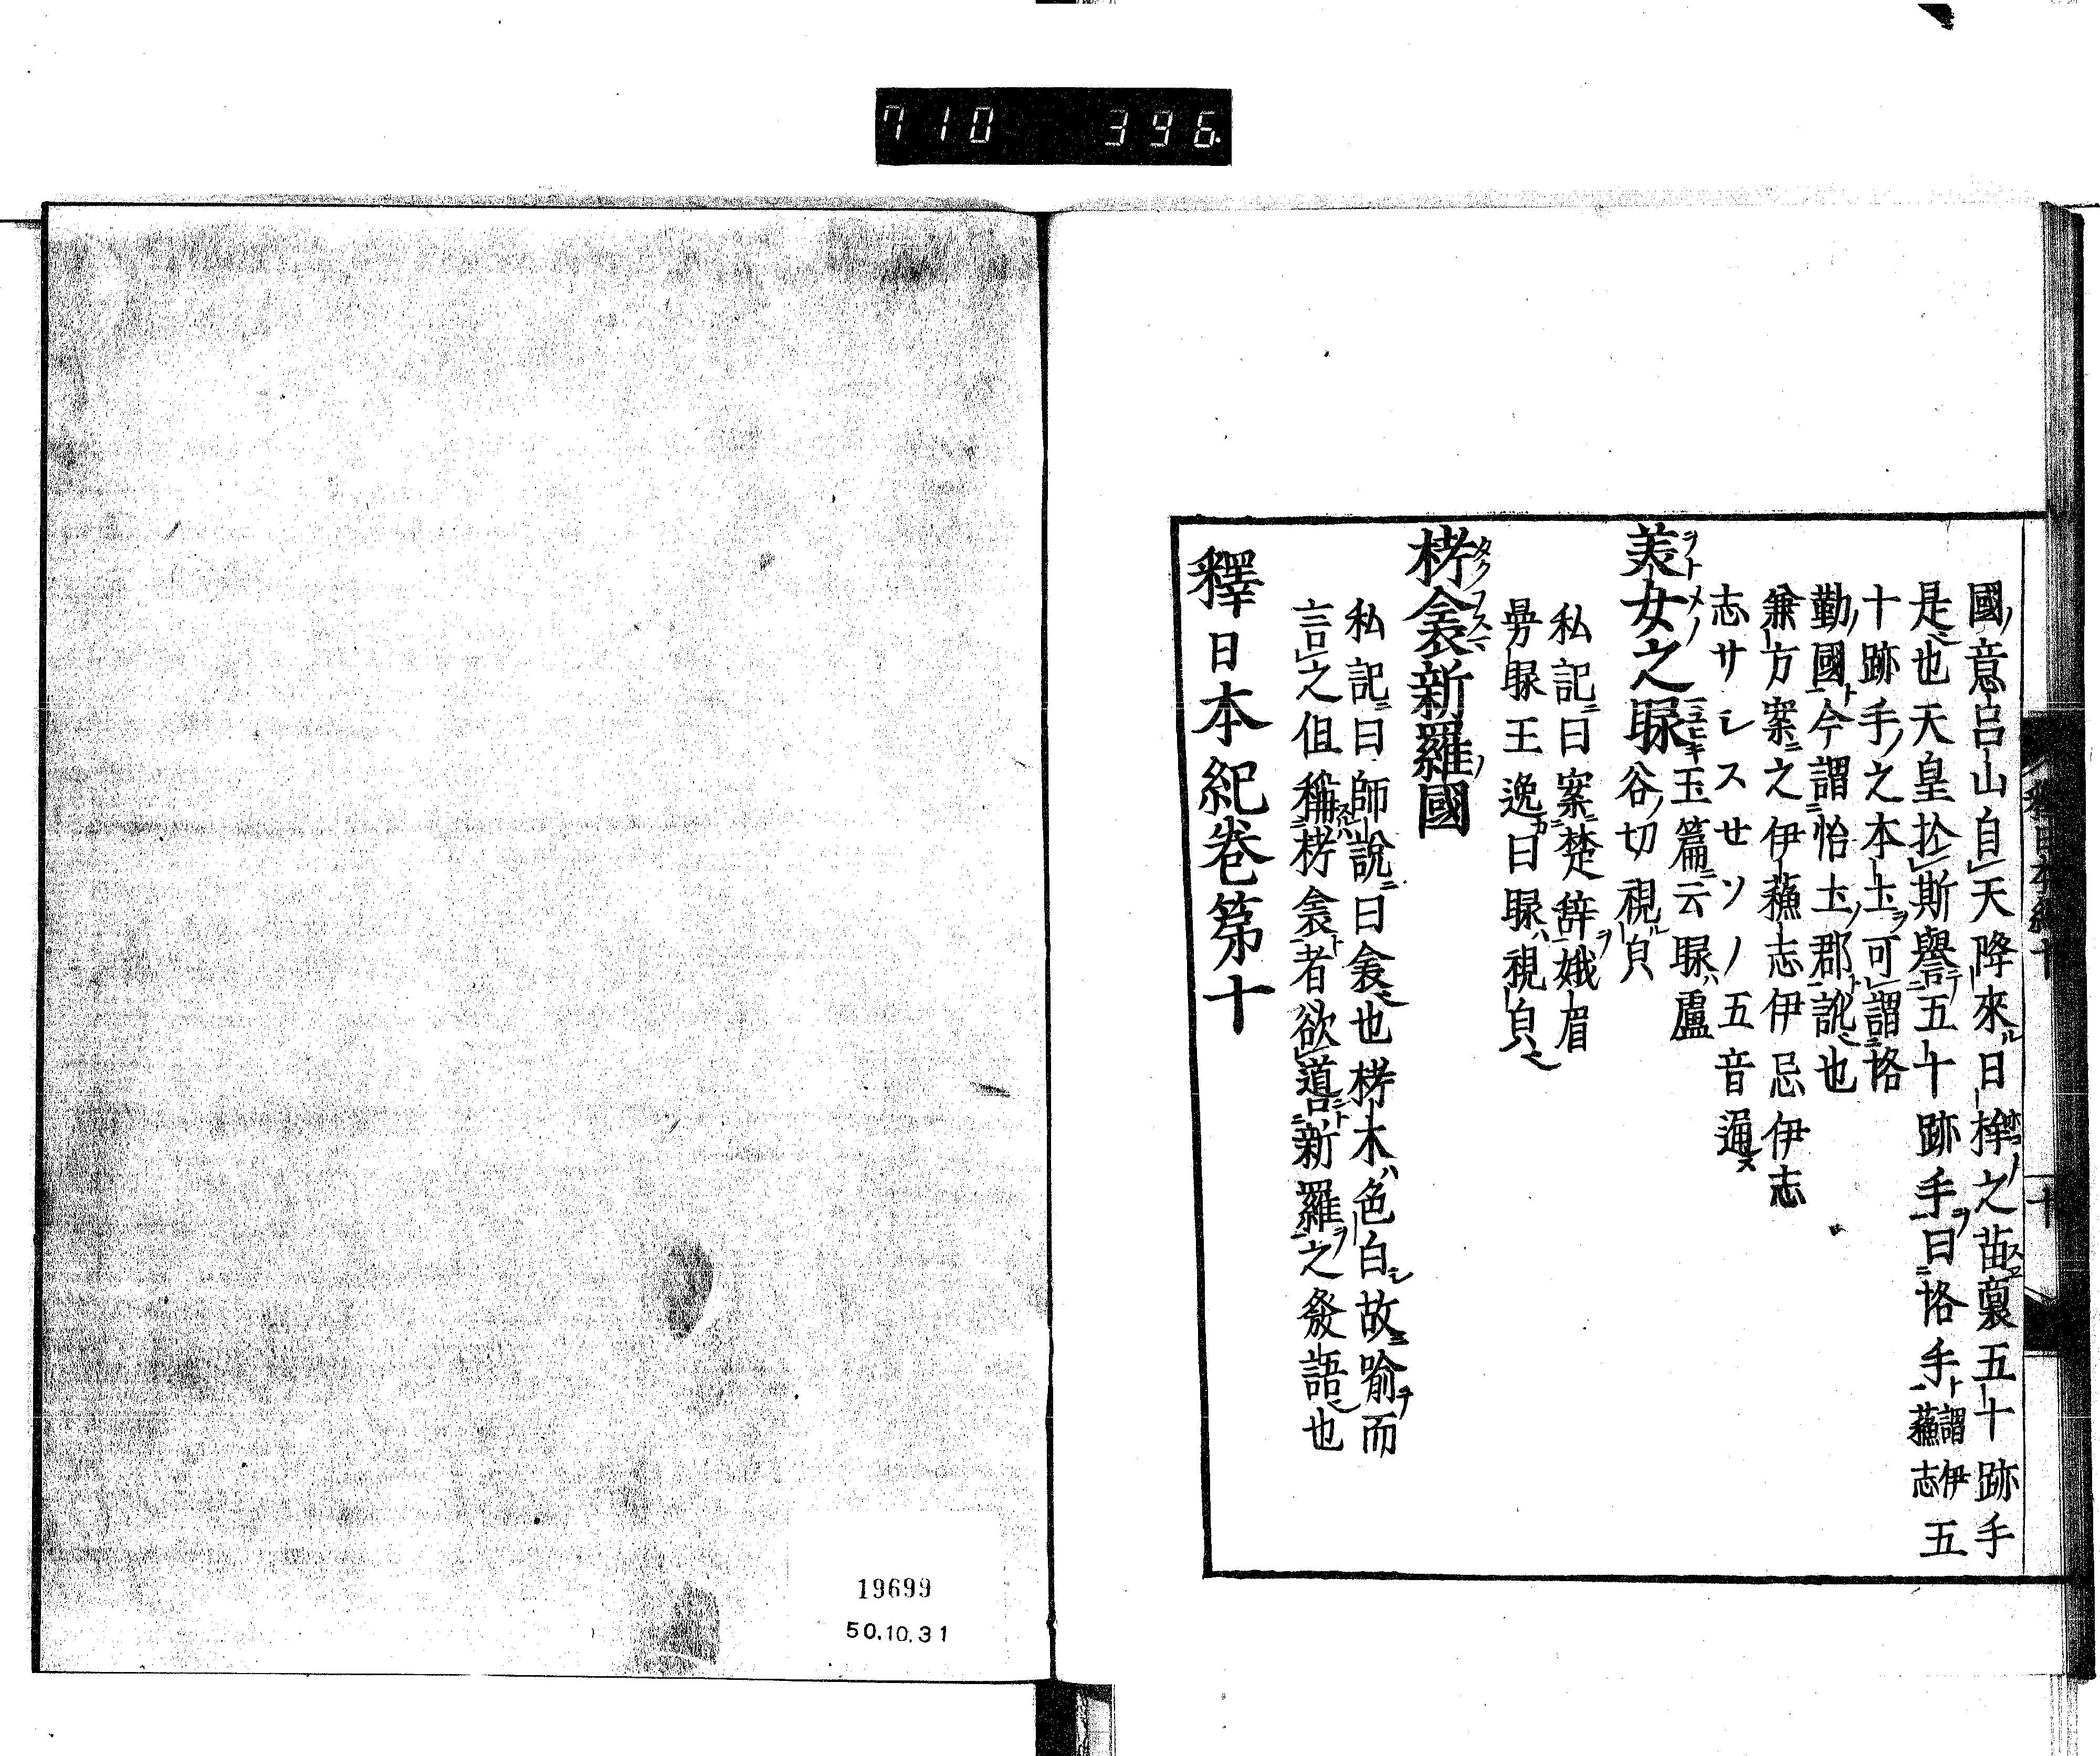 710 396
國意呂山自天降來日桙之苗裔五十跡手
是也天皇於斯譽五十跡手曰恪手謂伊蘓志五
十跡手之本土可謂恪
勤國今謂怡土郡訛也
兼方案之伊蘓志伊忌伊志
志サシスセソノ五音通
美女之睩玉篇云睩盧
谷切視皃
私記曰案楚辞娥眉
曼睩王逸曰睩視皃
栲衾新羅國
私記曰師說曰衾也栲木色白故喻而
言之但稱栲衾者欲噵新羅之發語也
釋日本紀卷第十
釋日本紀十
十
19699
50.10.31